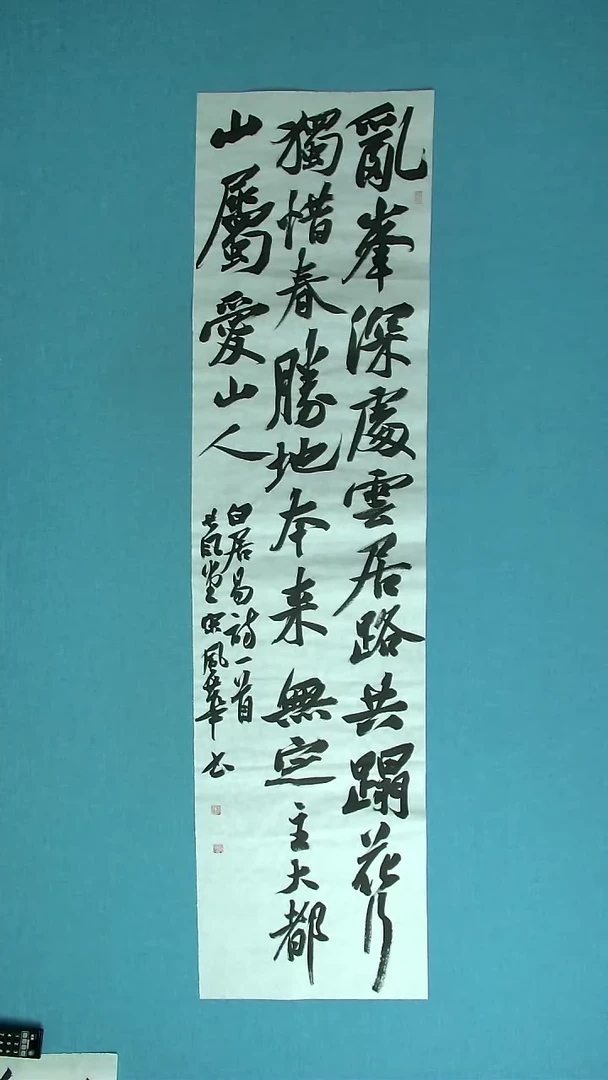 亂峯深處雲居路共蹋花行
獨惜春勝地本来無定主大都
山屬愛山人
白居易詩一首
風華书